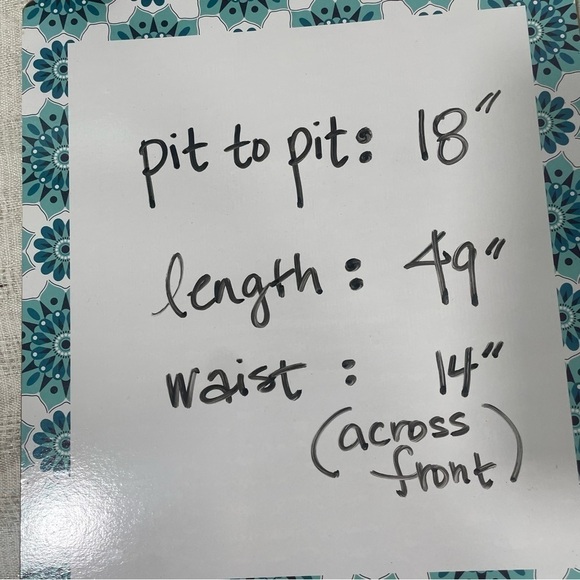 pit to pit: 18"
length: 49"
waist: 14"
(across
front)